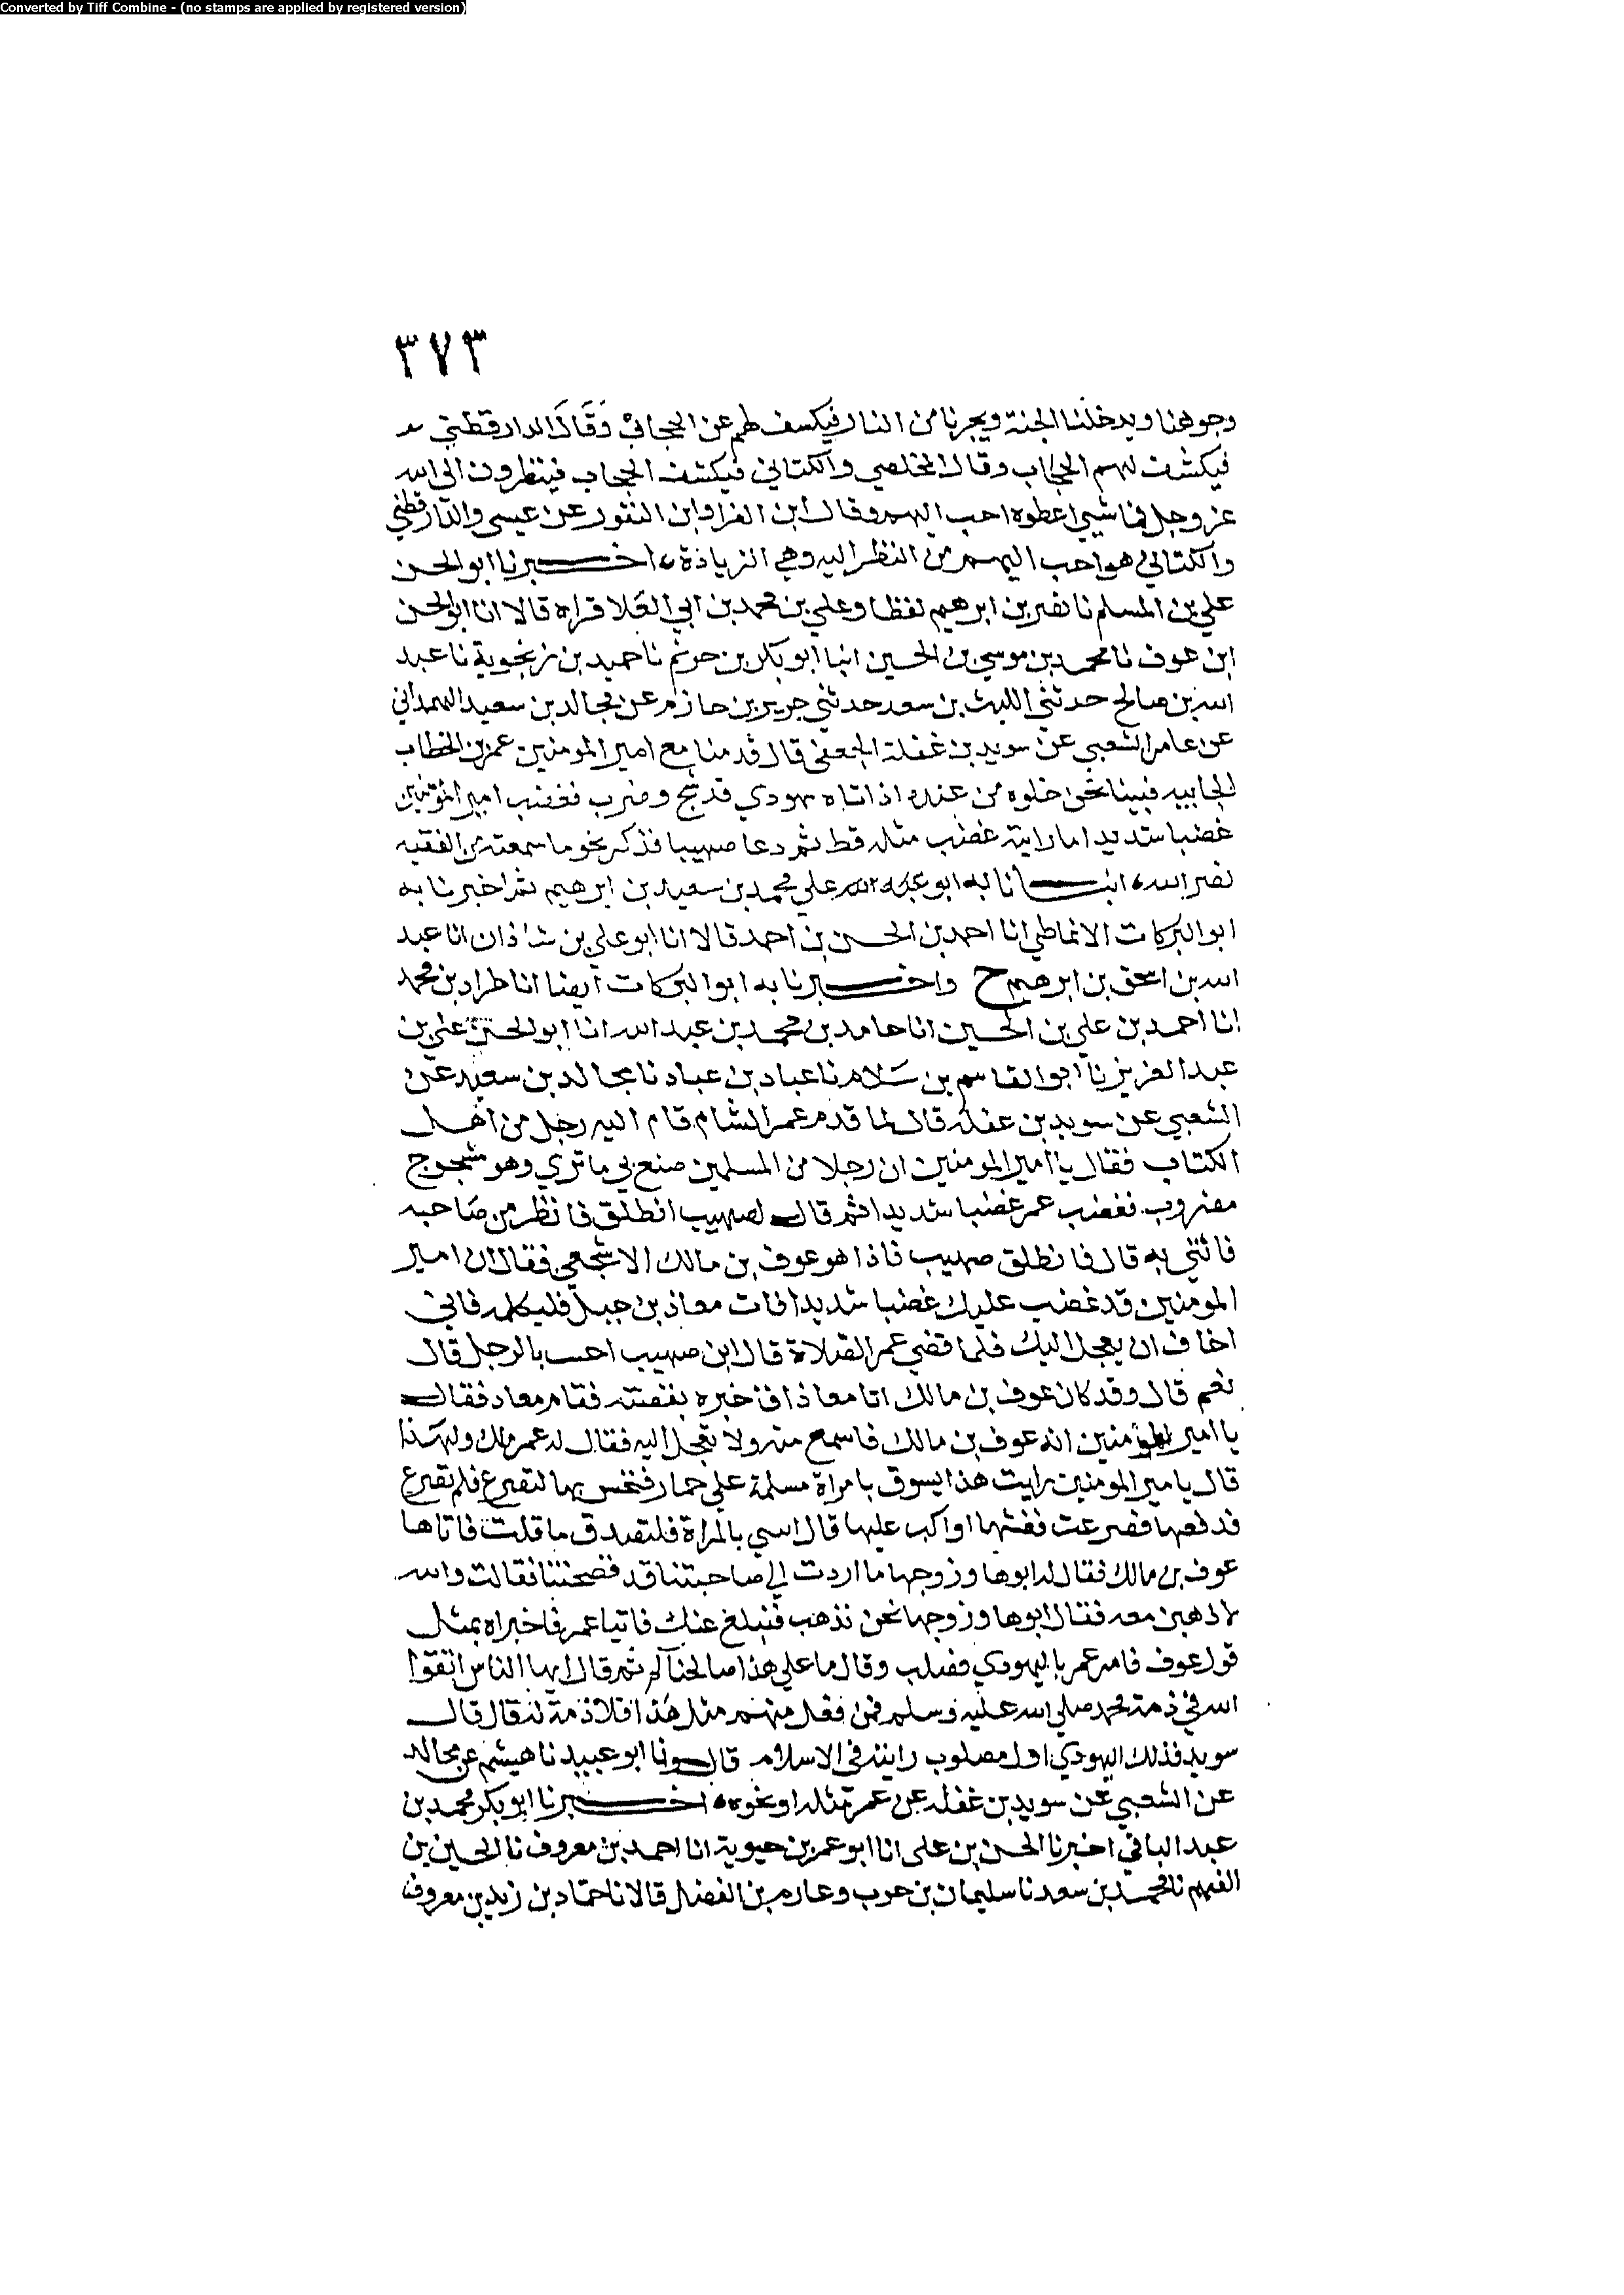 Converted by Tiff Combine - (no stamps are applied by registered version)
٣٧٣
وجوهنا ويدخلنا الجنة ويجرنا من النار فيكسف لهم عن الحجاب وقال الدارقطني
فيكشف لهم الحجاب وقال المخلصي والكتاني فيكشف الحجاب فينظرون الى الله
عز وجل فما شيي اعطوه احب اليهم وقال ابن الفرا وابن النقور عن عيسى والدارقطني
والكتاني هو احب اليهم من النظر اليه وهي الزيادة، اخبرنا ابو الحسن
علي بن المسلم نا نصر بن ابرهيم لفظا وعلي بن محمد بن ابي العلا قراه قالا انا ابو الحسن
ابن عوف نا محمد بن موسي بن الحسين انبا ابو بكر بن خريم نا حميد بن زنجوية نا عبد
الله بن صالح حدثني الليث بن سعد حدثني جرير بن حازم عن مجالد بن سعيد الهمداني
عن عامر الشعبي عن سويد بن غفلة الجعفي قال قدمنا مع امير المومنين عمر بن الخطاب
الجابيه فبينا نحن خلوه من عنده اذ اتاه يهودي قد شج وضرب فغضب امير المومنين
غضبا شديدا ما رايته غضب مثله قط ثم دعا صهيبا فذكر نحو ما سمعته من الفقيه
نصر الله، انبانا به ابو علي محمد بن سعيد بن ابرهيم ثم اخبرنا به
ابو البركات الانماطي انا احمد بن الحسن بن احمد قالا انا ابو علي بن شاذان انا عبد
الله بن اسحق بن ابرهيم ح واخبرنا به ابو البركات ايضا انا طراد بن محمد
انا احمد بن علي بن الحسين انا حامد بن محمد بن عبد الله انا ابو الحسن علي بن
عبد العزيز نا ابو القاسم بن سلام نا عباد بن عباد نا مجالد بن سعيد عن
الشعبي عن سويد بن غفلة قال لما قدم عمر الشام قام اليه رجل من اهل
الكتاب فقال يا امير المومنين ان رجلا من المسلمين صنع بي ما تري وهو مشجوج
مضروب فغضب عمر غضبا شديدا ثم قال لصهيب انطلق فانظر من صاحبه
فائتني به قال فانطلق صهيب فاذا هو عوف بن مالك الاشجعي فقال ان امير
المومنين قد غضب عليك غضبا شديدا فات معاذ بن جبل فليكلمه فاني
اخاف ان يعجل اليك فلما قضي عمر الصلاة قال اين صهيب احسب بالرجل قال
نعم قال وقد كان عوف بن مالك اتا معاذا فاخبره بقصته فقام معاذ فقال
يا امير المؤمنين انه عوف بن مالك فاسمع منه ولا تعجل اليه فقال له عمر مالك ولهذا
قال يا مير المومنين رايت هذا يسوق بامراة مسلمة علي حمار فنخس بها لتصرع فلم تصرع
فدفعها فصرعت فغشها او اكب عليها قال ائتني بالمراة فلتصدق ما قلت فاتاها
عوف بن مالك فقال له ابوها وزوجها ما اردت الي صاحبتنا قد فضحتنا فقالت والله
لاذهبن معه فقال ابوها وزوجها نحن نذهب فنبلغ عنك فاتيا عمر فاخبراه بمثل
قول عوف فامر عمر باليهودي فصلب وقال ما علي هذا صالحناكم ثم قال ايها الناس اتقوا
الله في ذمة محمد صلى الله عليه وسلم فمن فعل منهم مثل هذا فلا ذمة له قال قال
سويد فذلك اليهودي اول مصلوب رايته في الاسلام قال ونا ابو عبيد نا هيشم عن مجالد
عن الشعبي عن سويد بن غفله عن عمر مثله او نحوه، اخبرنا ابو بكر محمد بن
عبد الباقي اخبرنا الحسن بن على انا ابو عمر بن حيوية انا احمد بن معروف نا الحسين بن
الفهم نا محمد بن سعد نا سليمان بن حرب وعارم بن الفضل قالا نا حماد بن زيد بن معروف